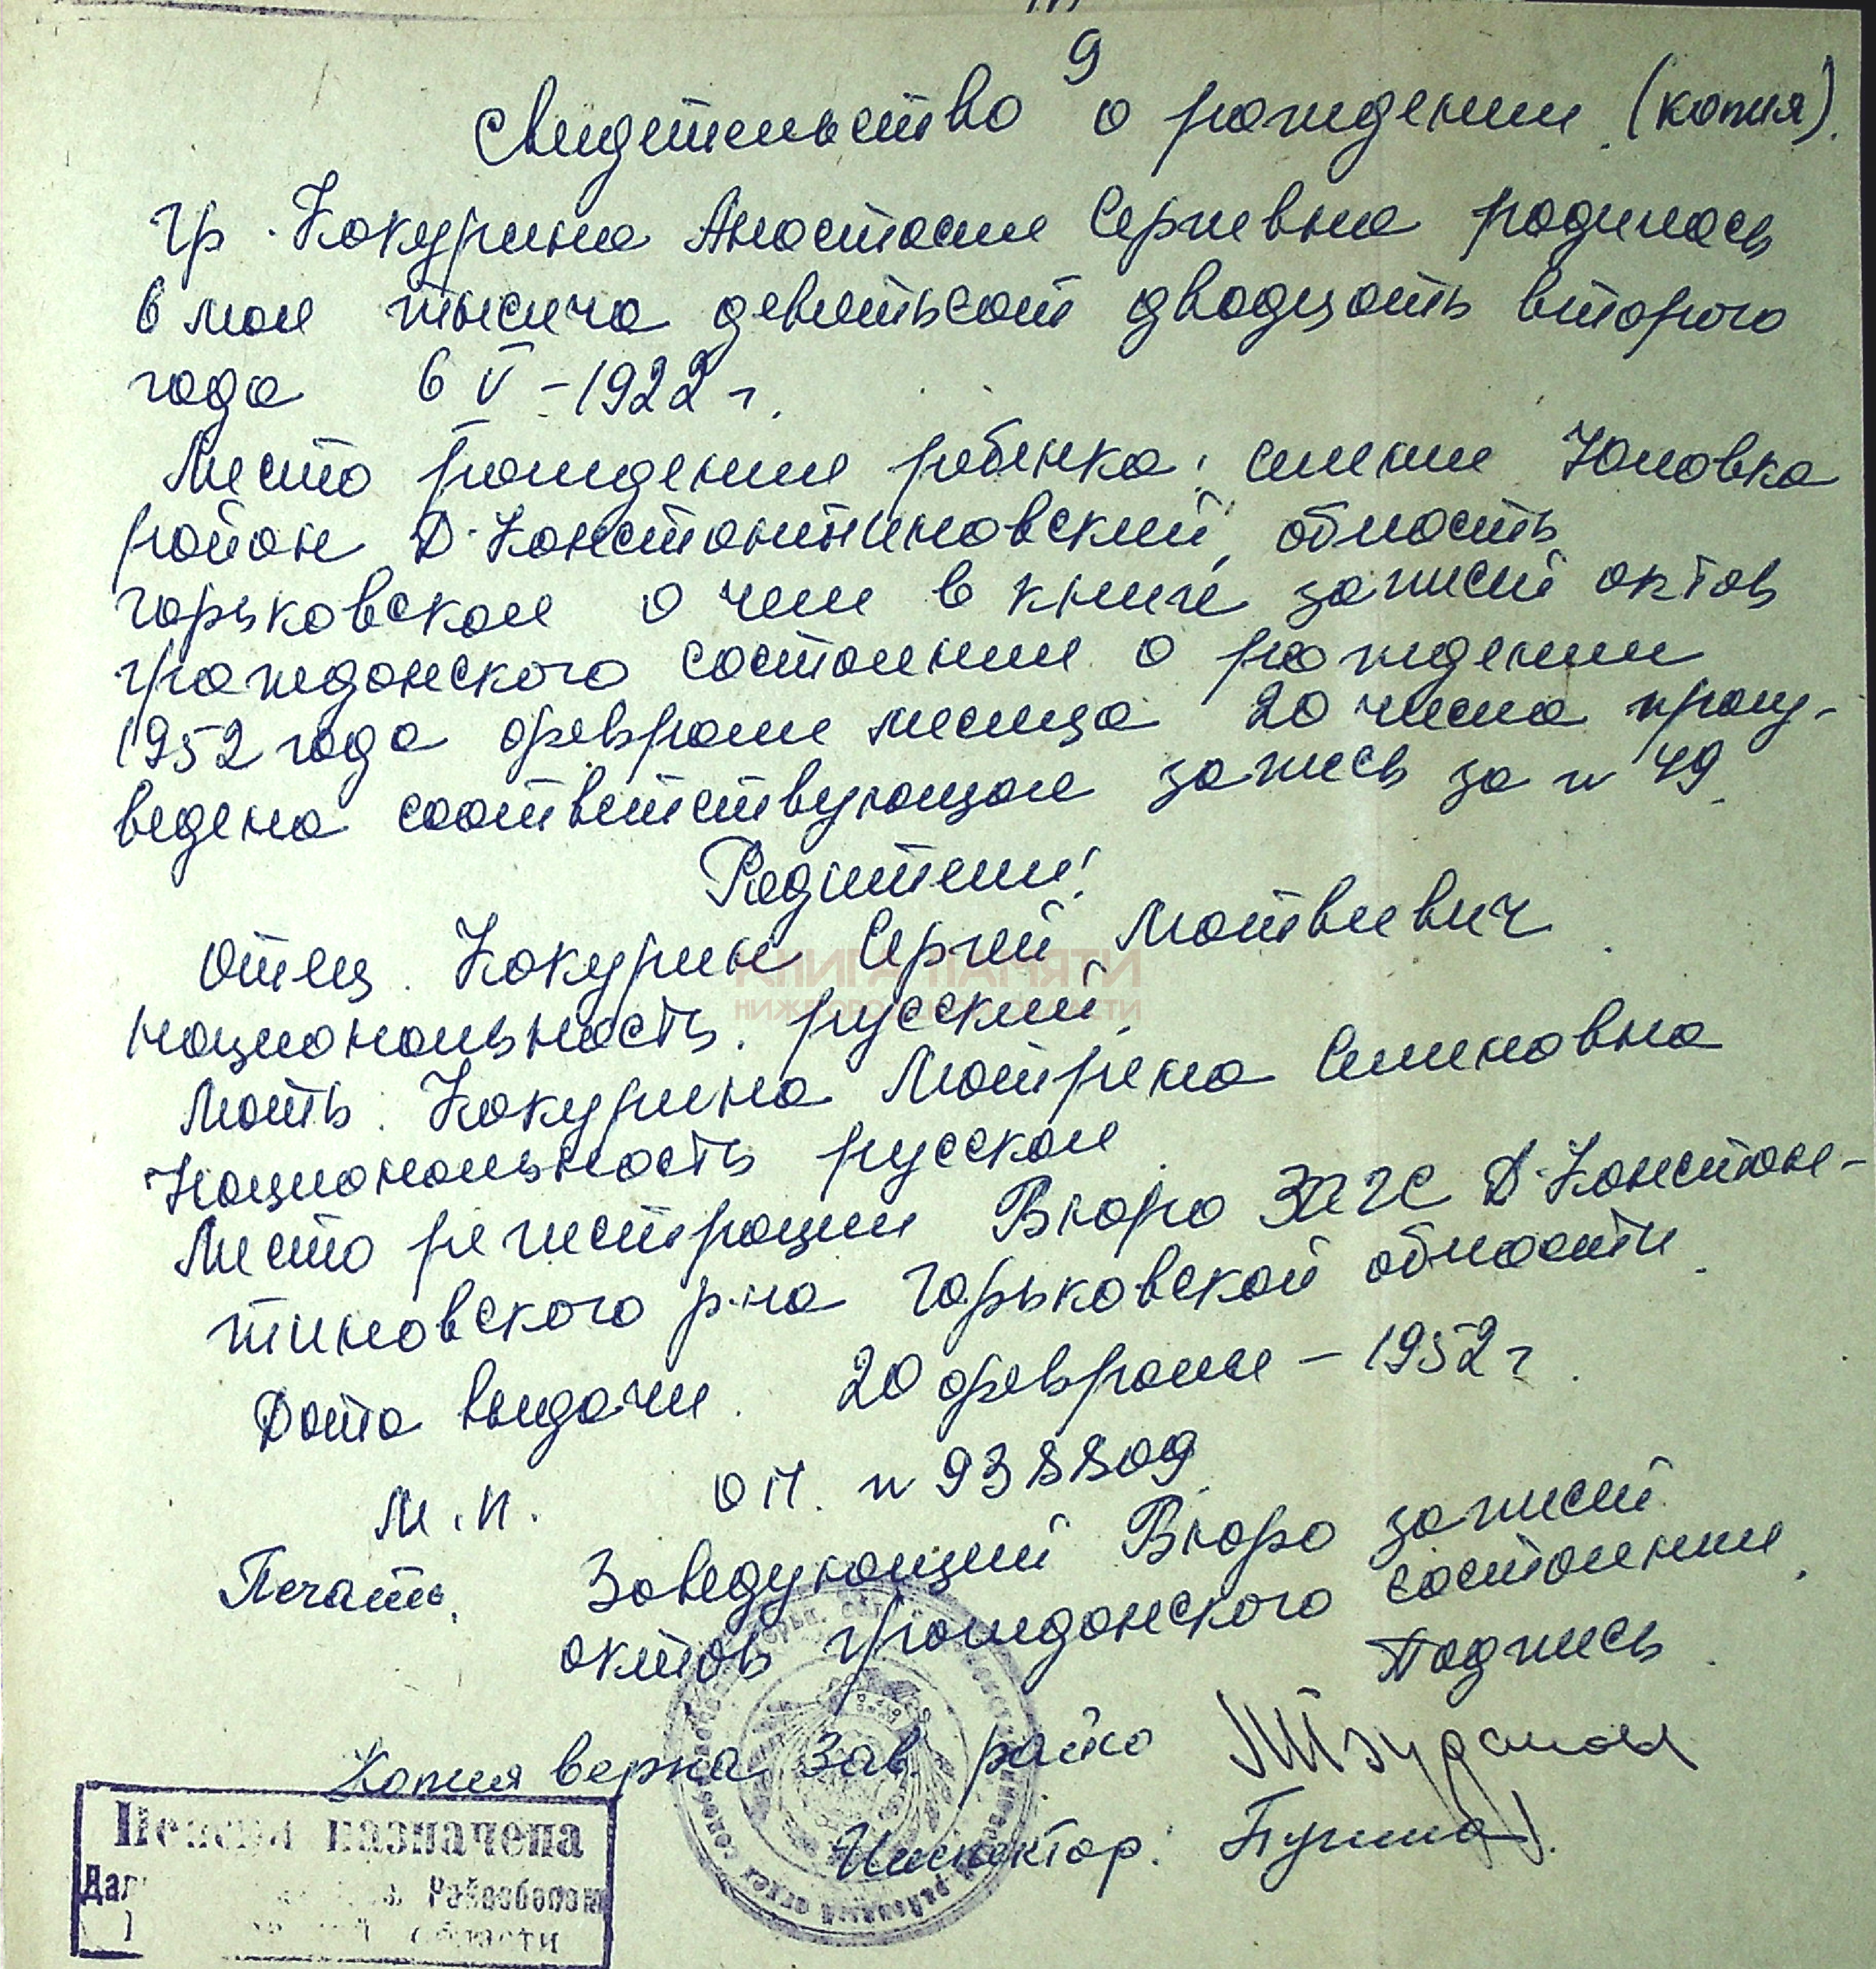 9
Свидетельство о рождении (копия).
Гр. Кокурина Анастасия Сергеевна родилась
в мае тысяча девятьсот двадцать второго
года 6 V – 1922 г.
Место рождения ребенка: селение Юловка
район Д-Константиновский, область
Горьковская о чем в книге записей актов
гражданского состояния о рождении
1952 года февраля месяца 20 числа произ-
ведена соответствующая запись за N 49
Родители:
Отец. Кокурин Сергей Матвеевич
национальность. русский.
Мать. Кокурина Матрена Семеновна
Национальность русская
Место регистрации Бюро ЗАГС Д-Констан-
тиновского р-на Горьковской области.
Дата выдачи. 20 февраля – 1952 г.
М.П. N 938809
Печать. Заведующий Бюро записей
актов гражданского состояния.
Подпись.
Копия верна Зав. райсо
Инспектор:
Пенсия назначена
Райсобесом
области
КНИГА ПАМЯТИ
НИЖЕГОРОДСКОЙ ОБЛАСТИ